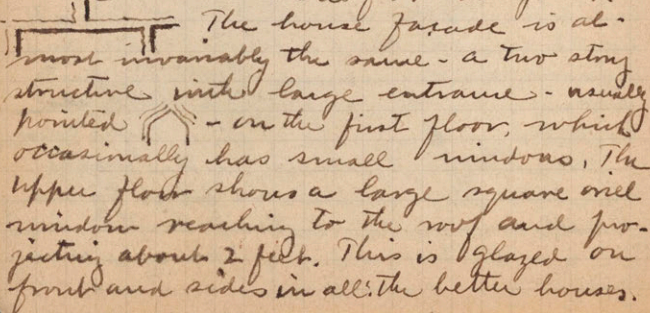 The house facade is al-
most invariably the same - a two story
structure with large entrance - usually
pointed - on the first floor, which
occasionally has small windows. The
upper floor shows a large square oriel
window reaching to the roof and pro-
jecting about 2 feet. This is glazed on
front and sides in all the better houses.